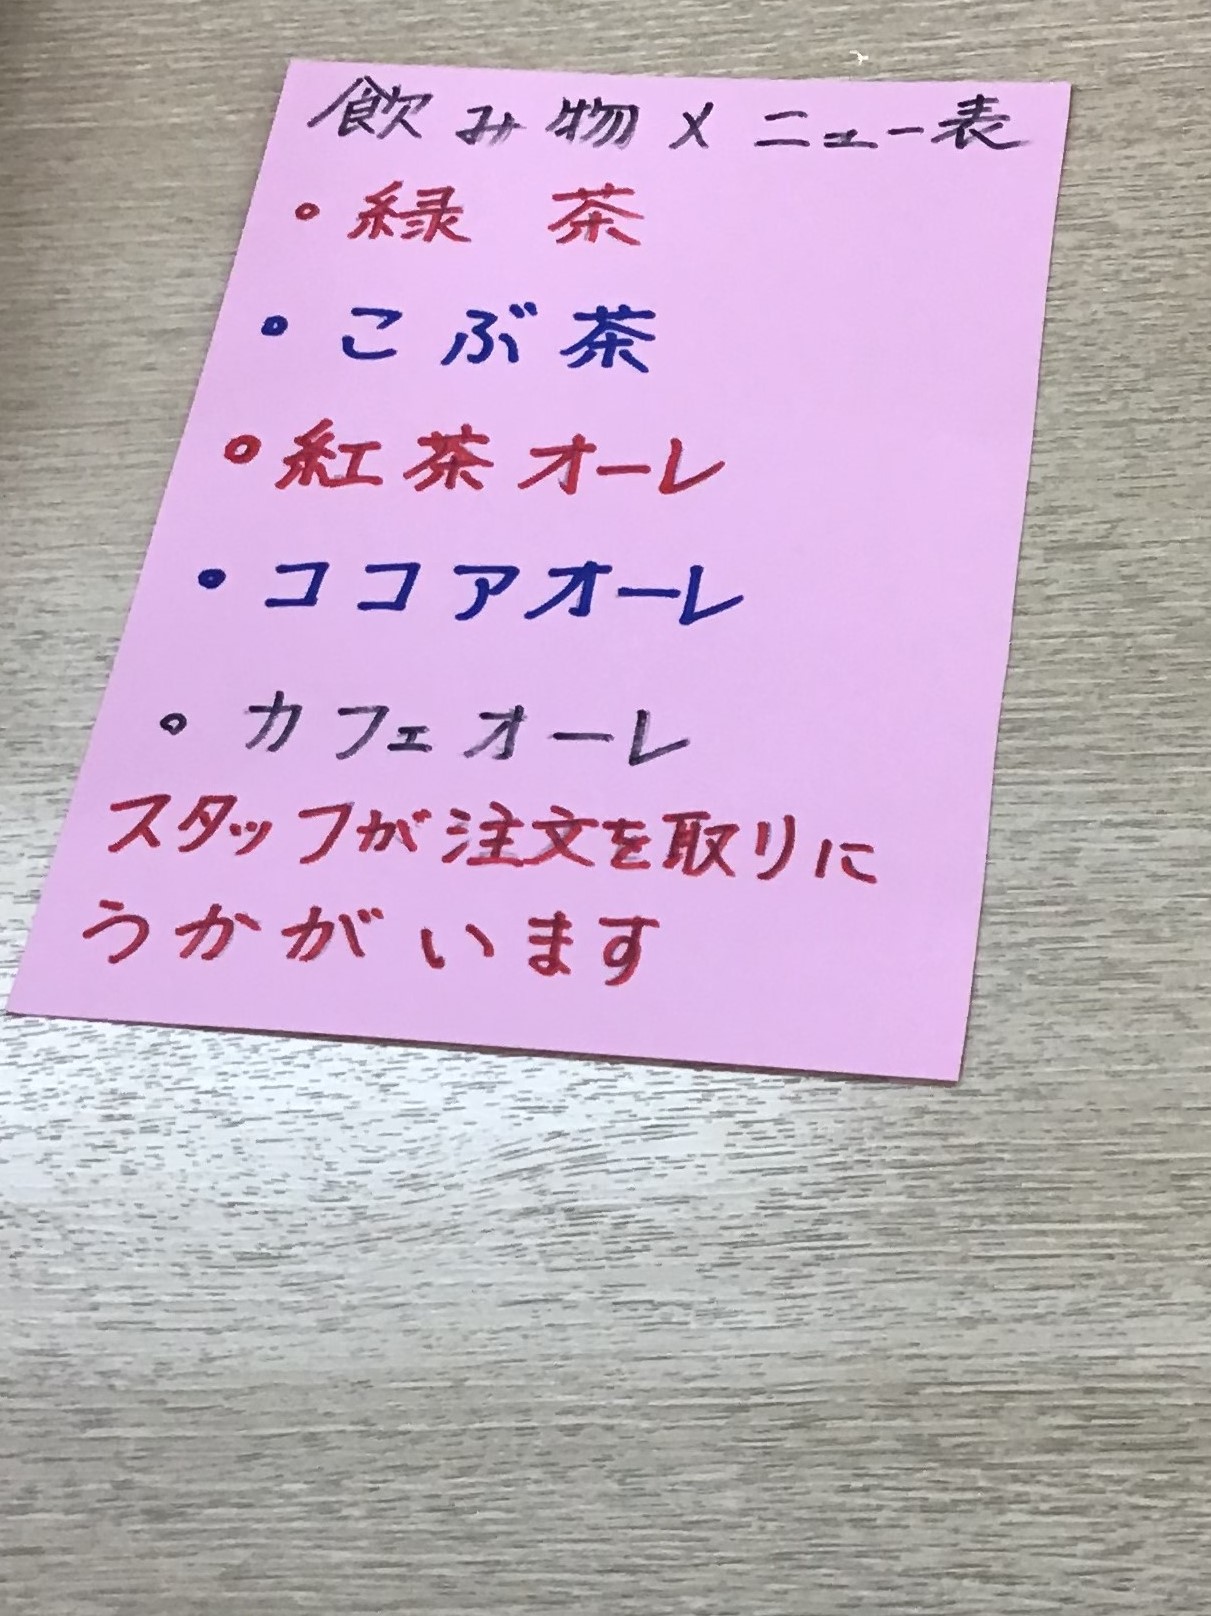 飲み物メニュー表
・緑 茶
・こぶ茶
・紅茶オーレ
・ココアオーレ
・カフェオーレ
スタッフが注文を取りに
うかがいます